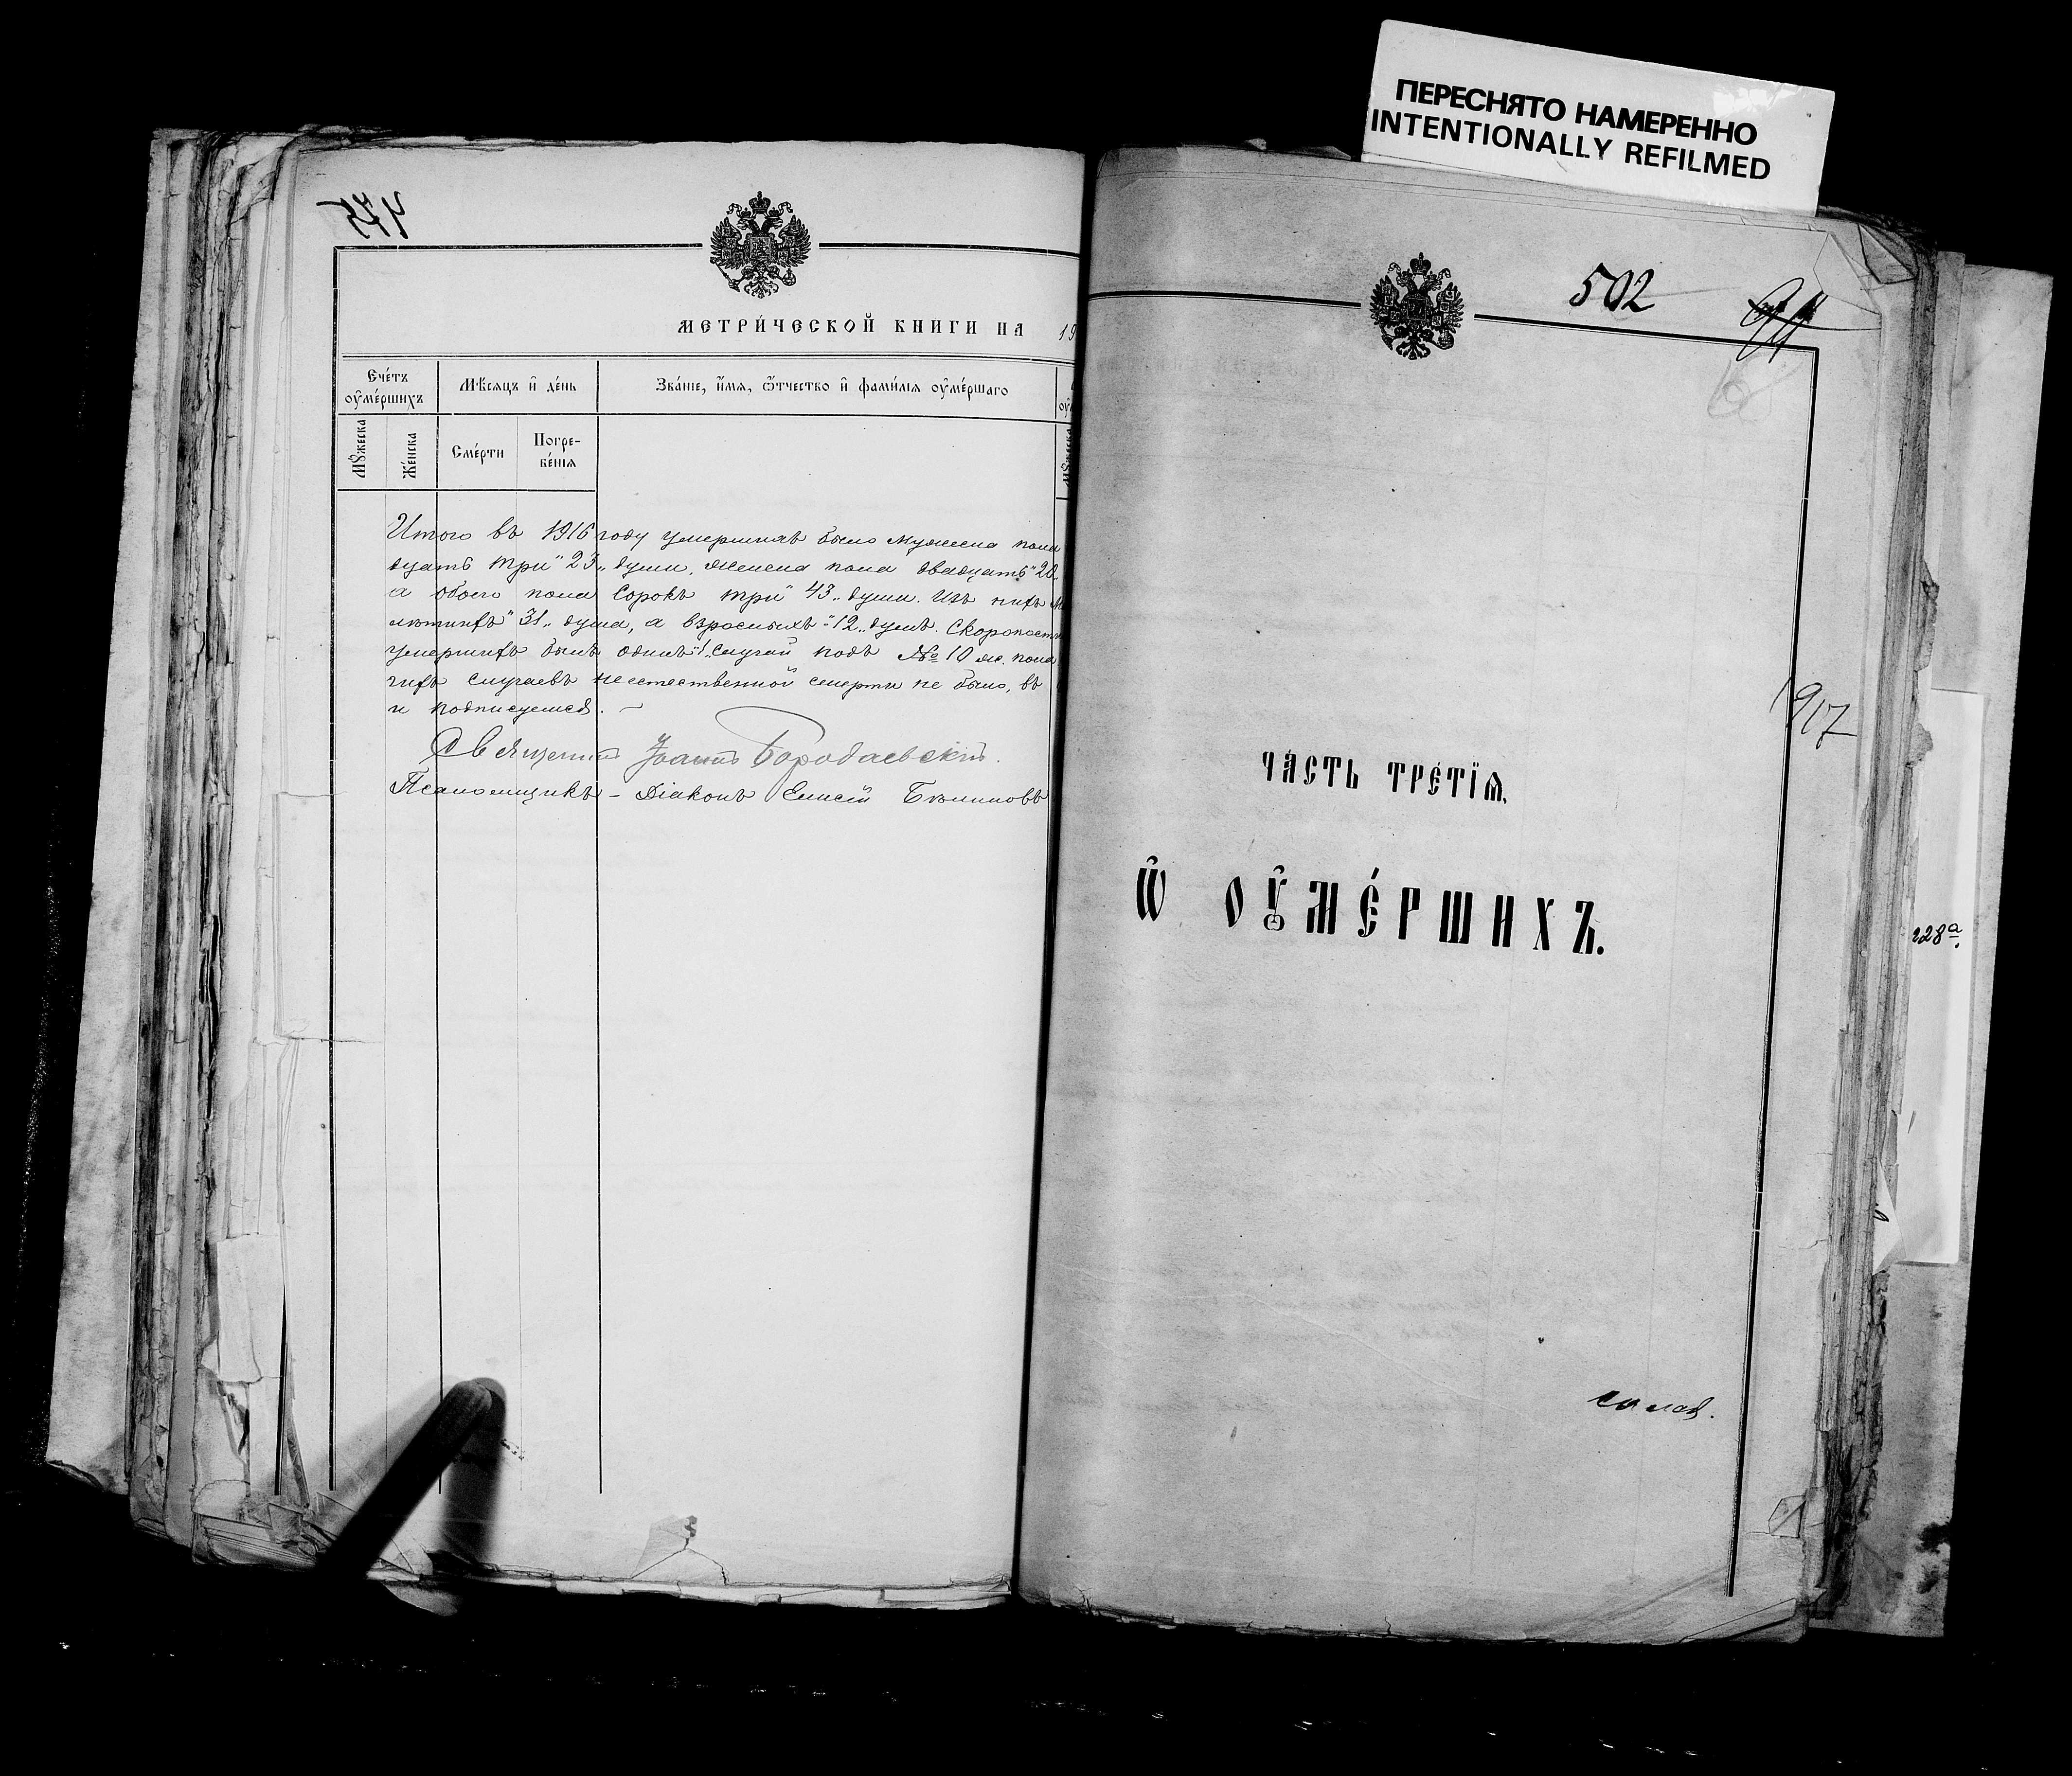 ПЕРЕСНЯТО НАМЕРЕННО
INTENTIONALLY REFILMED
475
МЕТРИ́ЧЕСКОЙ КНИГИ НА 19
Сче́тъ оу҆ме́ршихъ
Мѣ́сяцъ и҆ де́нь
Зва́нїе, и҆́мя, ѻ҆́тчество и҆ фами́лїя оу҆ме́ршаго
Мꙋ́жеска
Же́нска
Сме́рти
Погре-
бе́нїя
Мꙋ́жеска
Итого въ 1916 году умершихъ было мужеска пола
дцать три "23" души, женска пола двадцать "20"
а обоего пола сорокъ три "43" души. Изъ нихъ
лѣтнихъ "31" душа, а взрослыхъ "12" душъ. Скоропост
умершихъ былъ одинъ "1" случай подъ № 10 ж. пола
гихъ случаевъ неестественной смерти не было, въ
и подписуемся.
Священникъ Іоаннъ Бородаевскій.
Псаломщикъ - Діаконъ Елисей
502
1917
ЧА́СТЬ ТРЕ́ТЇѦ.
Ѽ ОУ҆МЕ́РШИХЪ.
228а.